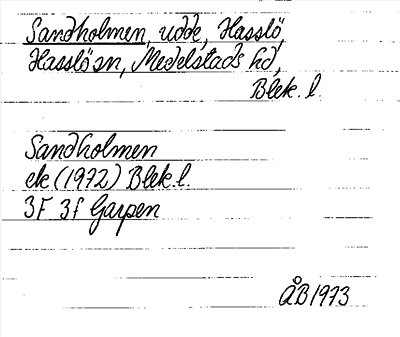 Sandholmen, udde, Hasslö,
Hasslö sn, Medelstads hd,
Blek. l.
Sandholmen
ek (1972) Blek. l.
3F 3f Garpen
ÅB 1973